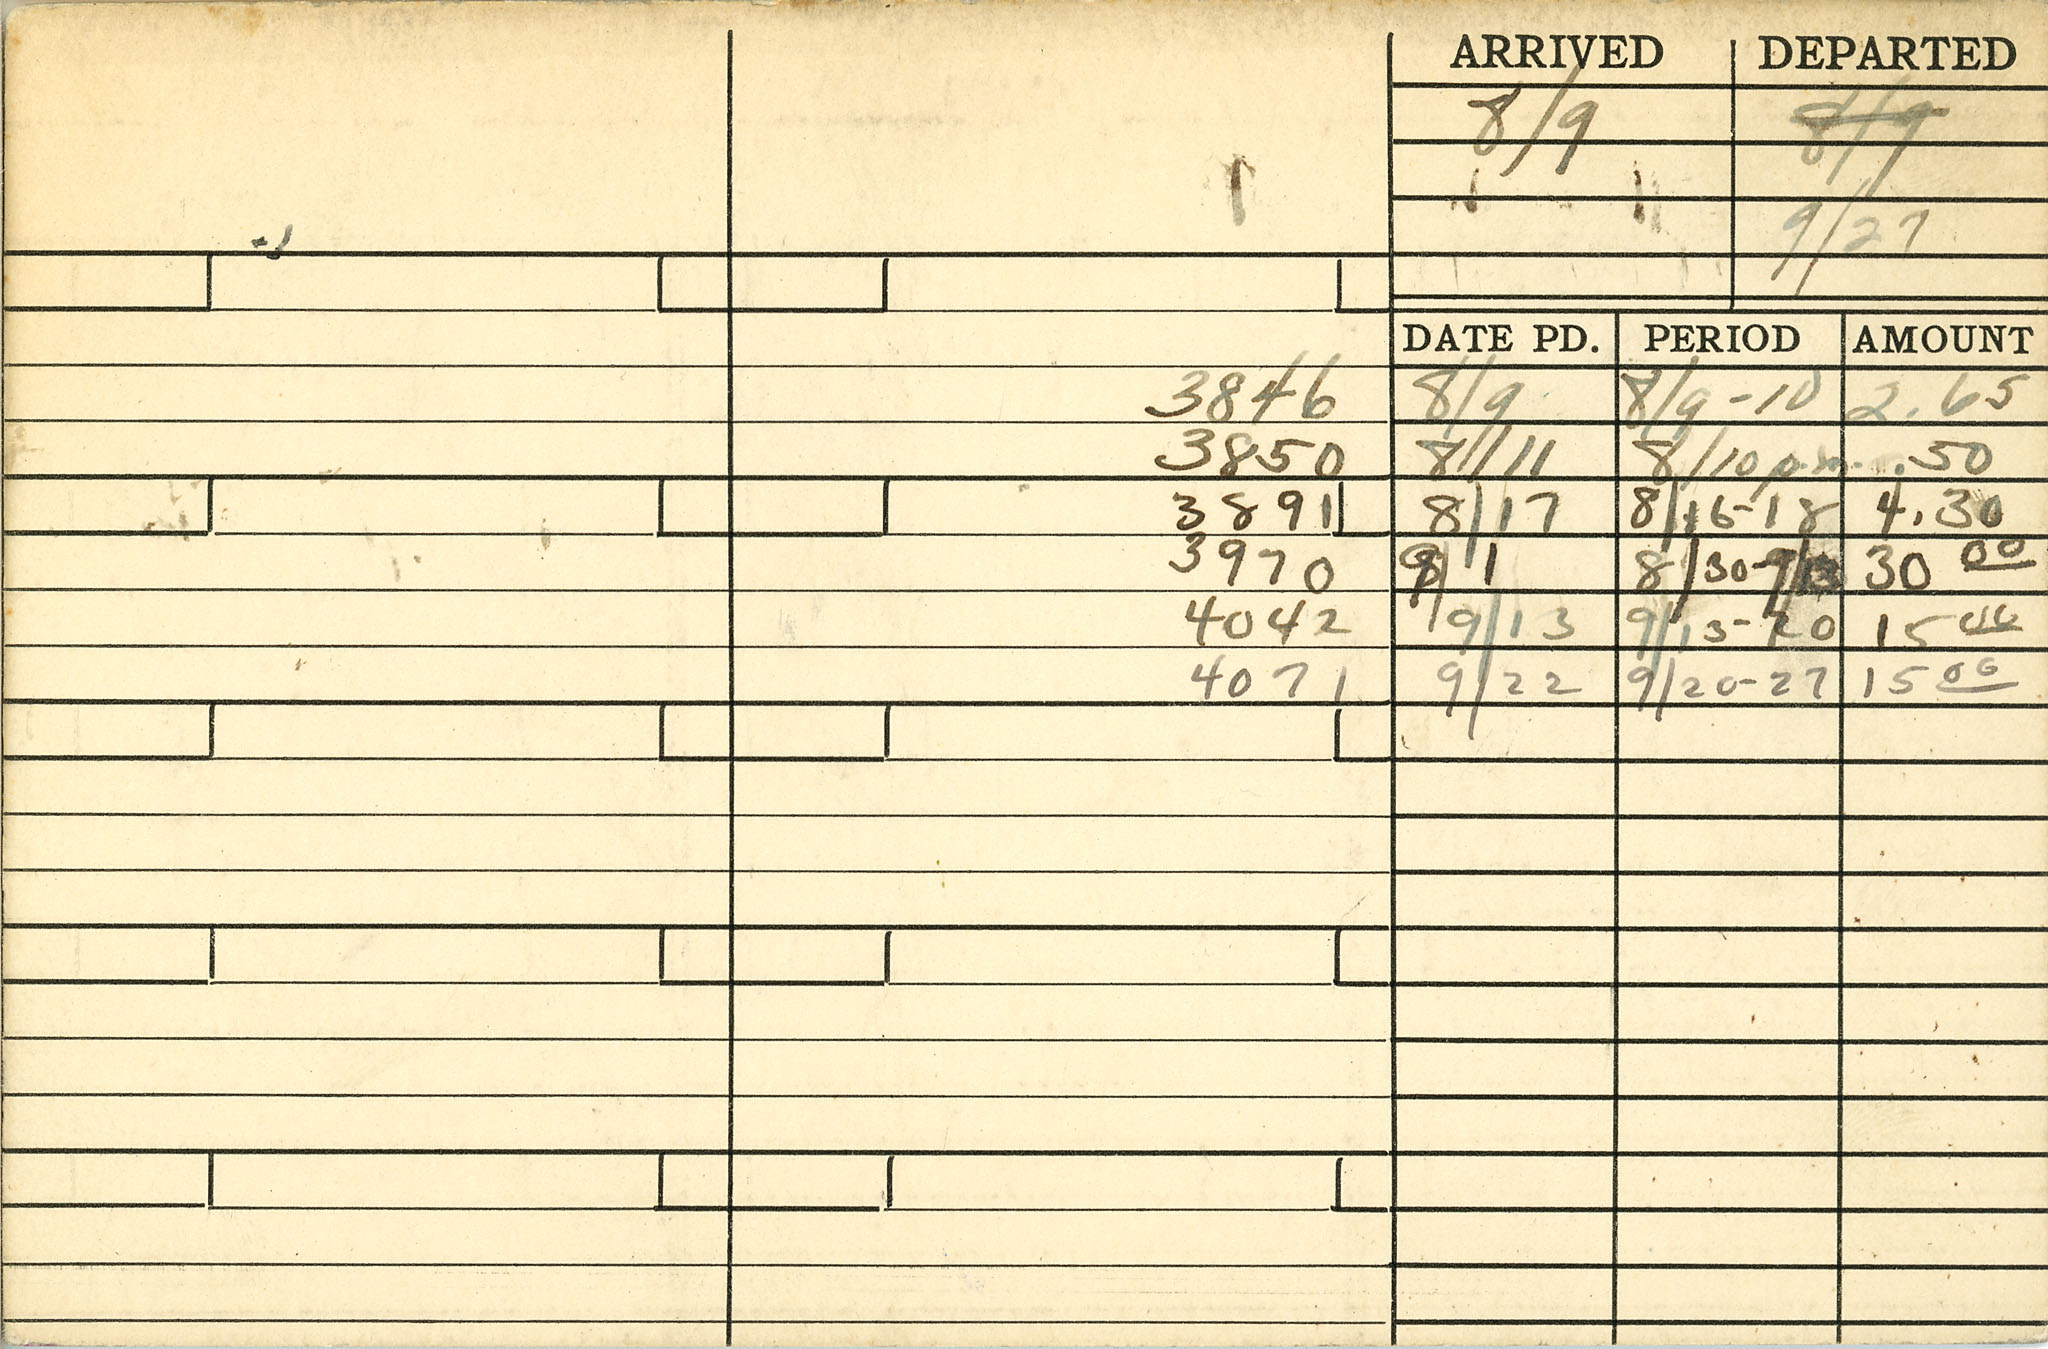 ARRIVED DEPARTED
8/9 8/9
9/27
DATE PD. PERIOD AMOUNT
3846 8/9 8/9-10 2.65
3850 8/11 8/10 p.m. .50
3891 8/17 8/16-18 4.30
3970 9/1 8/30-9/13 30 00
4042 9/13 9/13-20 15 00
4071 9/22 9/20-27 15 00